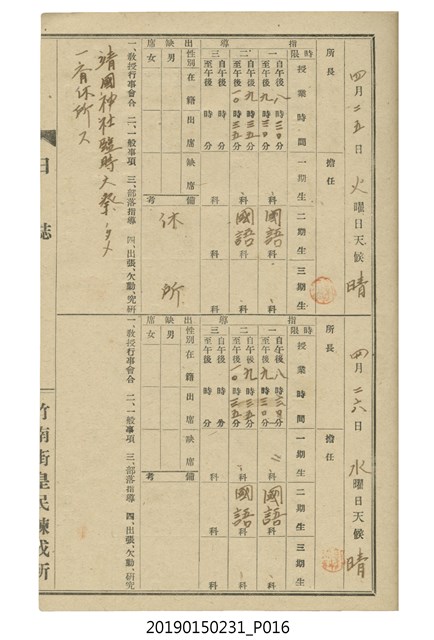 四月二五日 火曜日 天候 晴
所長 擔任
指導
時限 授業時間 一期生 二期生 三期生
一 自午後八時三〇分 至午後九時三〇分 科 國語科 科
二 自午後九時三五分 至午後一〇時三五分 科 國語科 科
三 自午後 時 分 至午後 時 分 科 科 科
出缺席
性別 在籍 出席 缺席 備考
男
女
休所
一、教授行事會合 二、一般事項 三、部落指導 四、出張、欠勤、究研
靖國神社臨時大祭ノタメ
一音休所ス
日誌
四月二六日 水曜日 天候 晴
所長 擔任
指導
時限 授業時間 一期生 二期生 三期生
一 自午後八時三〇分 至午後九時三〇分 科 國語科 科
二 自午後九時三五分 至午後一〇時三五分 科 國語科 科
三 自午後 時 分 至午後 時 分 科 科 科
出缺席
性別 在籍 出席 缺席 備考
男
女
一、教授行事會合 二、一般事項 三、部落指導 四、出張、欠勤、研究
竹南街皇民鍊成所
20190150231_P016